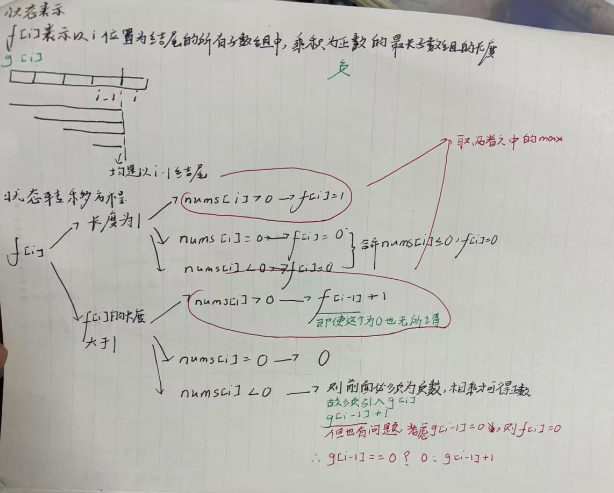 状态表示
f[i]表示以i位置为结尾的所有子数组中,乘积为正数的最长子数组的长度
g[i] 负
i-1 i
均是以i-1结尾
取两者之中的max
状态转移方程
f[i]
长度为1
nums[i]>0→f[i]=1
nums[i]=0→f[i]=0
nums[i]<0→f[i]=0
合并nums[i]≤0,f[i]=0
f[i]的长度
大于1
nums[i]>0→f[i-1]+1
即使这个为0也无所谓
nums[i]=0→0
nums[i]<0→则前面必须为负数,相乘才可得正数
故须引入g[i]
g[i-1]+1
但也有问题,考虑g[i-1]=0时,则f[i]=0
∴g[i-1]==0?0:g[i-1]+1